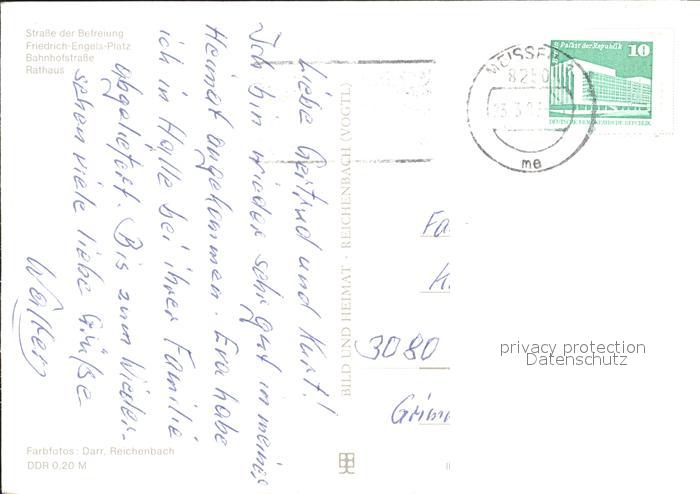 Straße der Befreiung
Friedrich-Engels-Platz
Bahnhofstraße
Rathaus
Liebe Gertrud und Kurt!
Ich bin wieder sehr gut in meiner
Heimat angekommen. Eva habe
ich in Halle bei ihrer Familie
abgeliefert. Bis zum Wieder-
sehen viele liebe Grüße
Farbfotos: Darr, Reichenbach
DDR 0,20 M
BILD UND HEIMAT · REICHENBACH (VOGTL)
MEISSEN
8250
me
Palast der Republik
10
DEUTSCHE DEMOKRATISCHE REPUBLIK
Fa
K
3080
Grim
privacy protection
Datenschutz